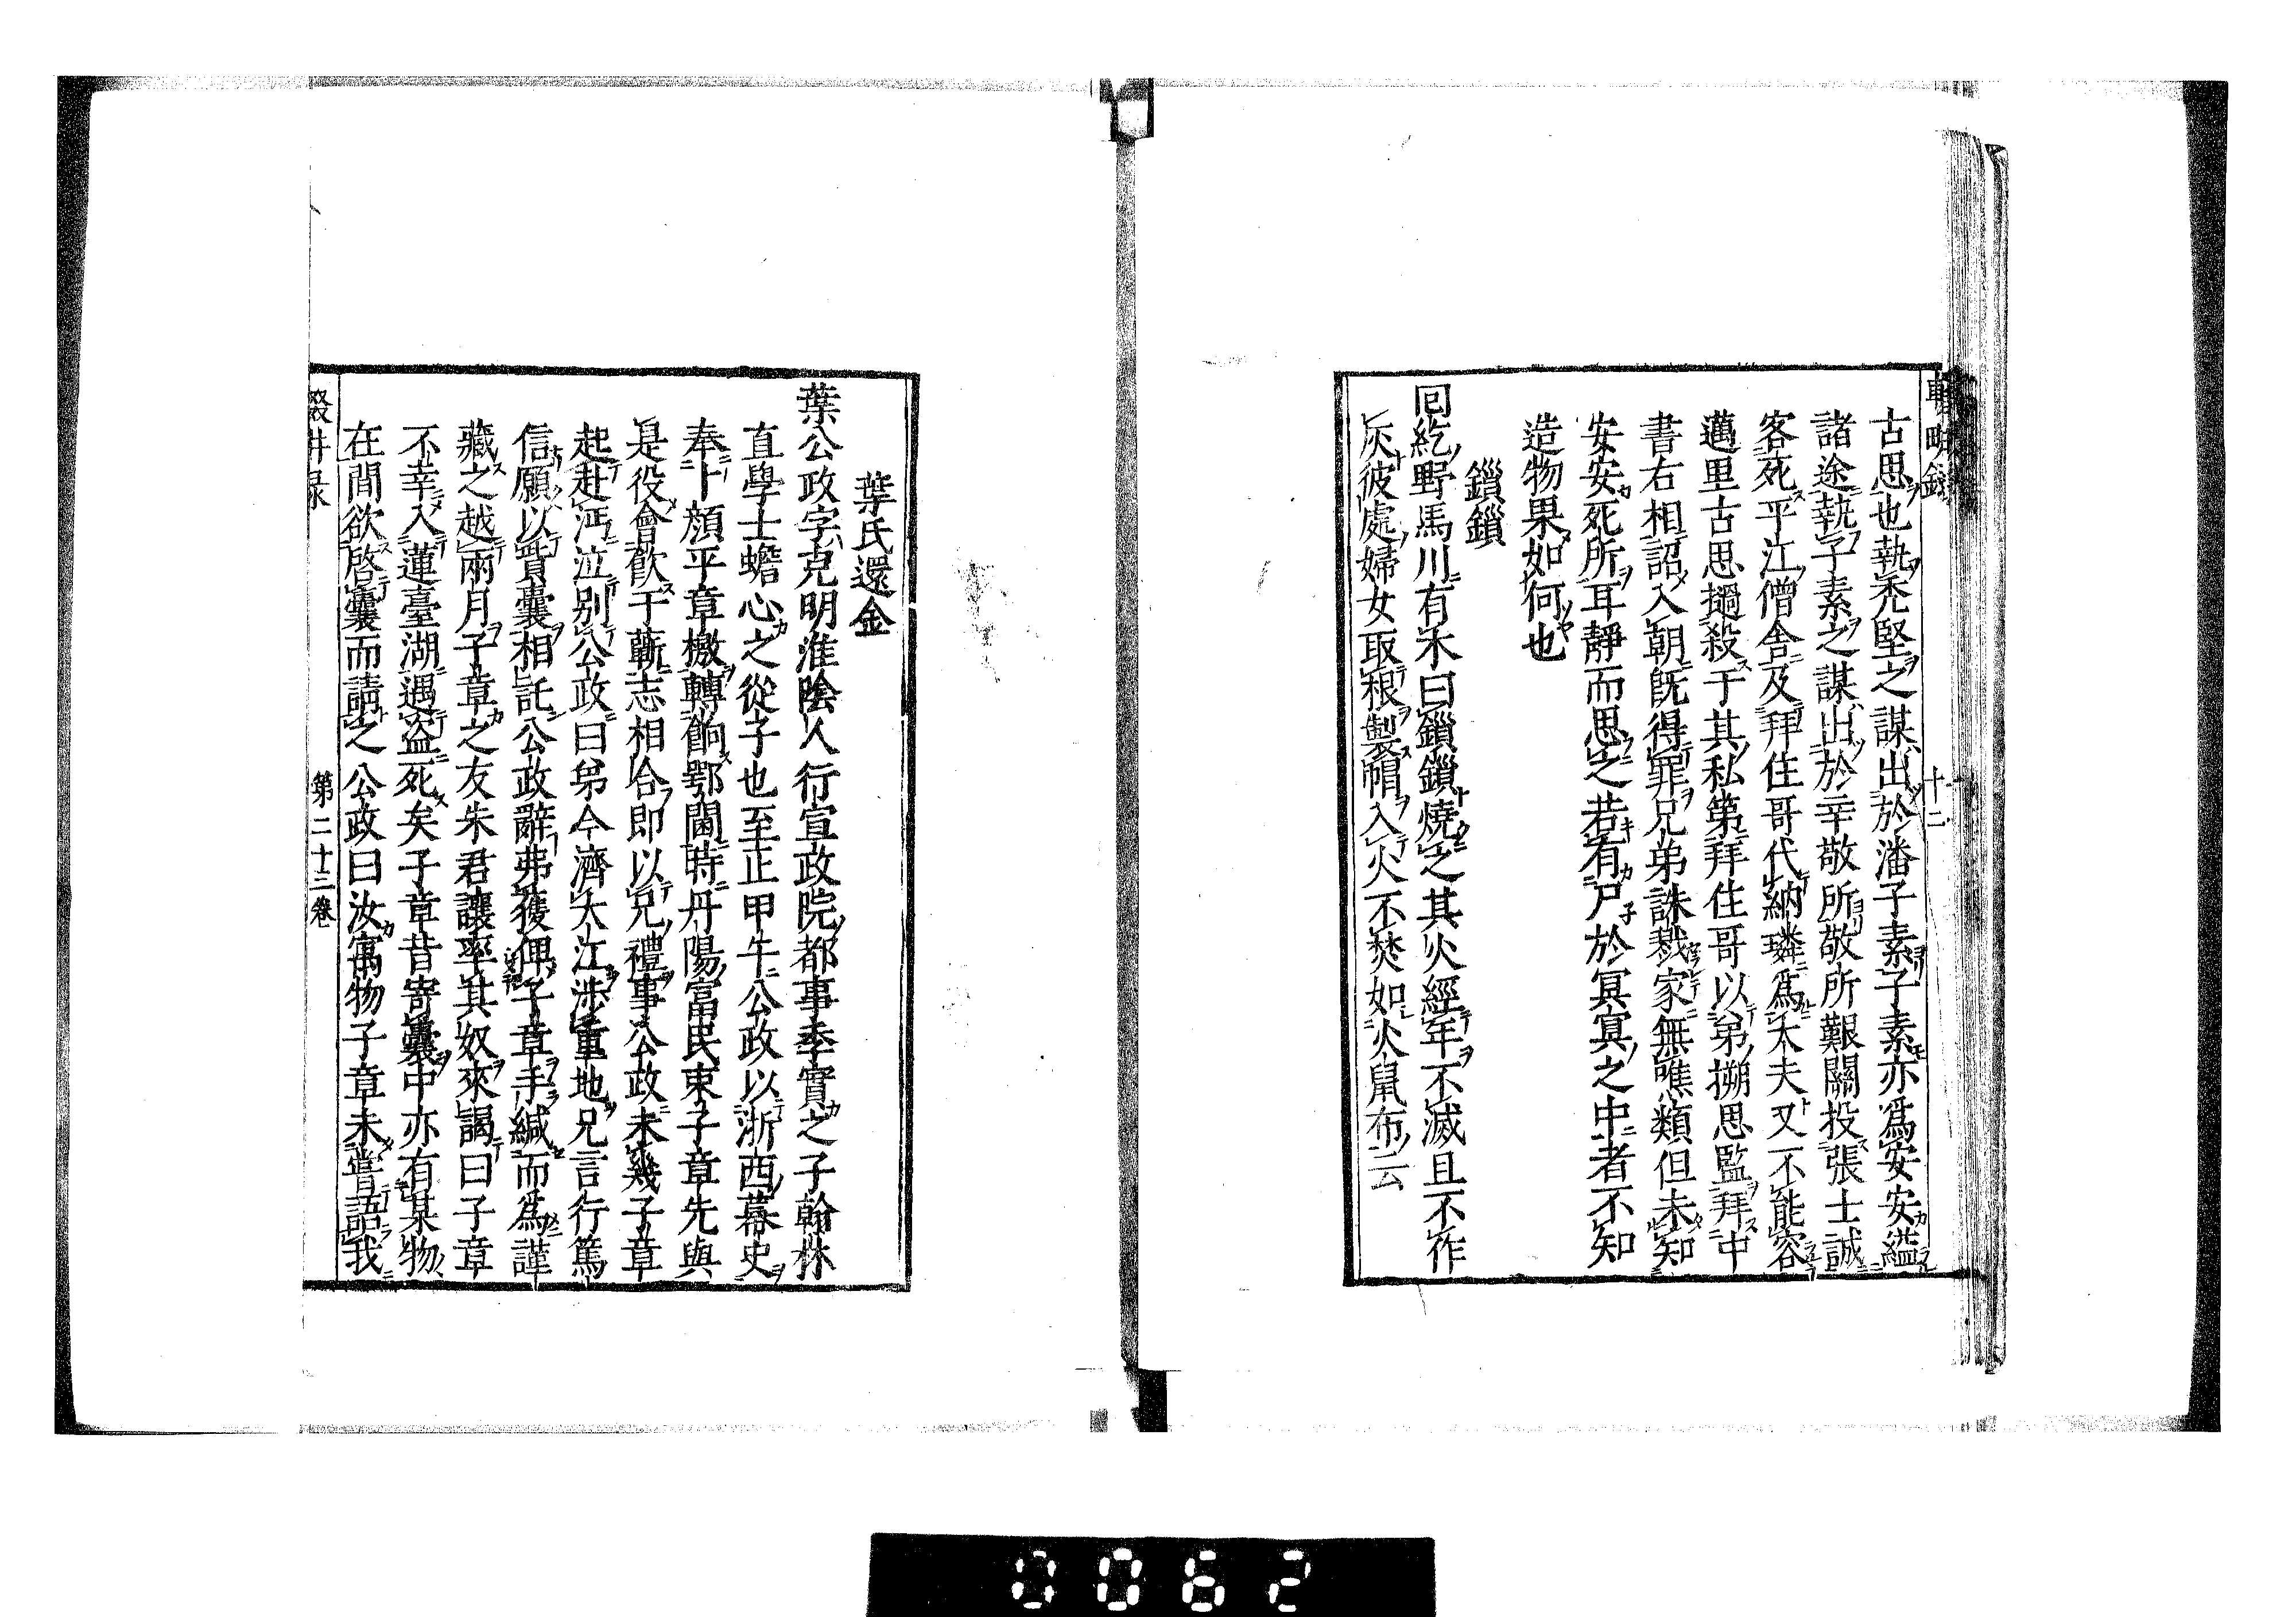 輟畊錄
十二
古思也執禿堅之謀出於潘子素子素亦爲安安縊
諸途執子素之謀出於幸敬所敬所艱關投張士誠
客死平江僧舍及拜住哥代納璘爲大夫又不能容
邁里古思撾殺于其私第拜住哥以弟搠思監拜中
書右相詔入朝旣得罪兄弟誅戮家無噍類但未知
安安死所耳靜而思之若有尸於冥冥之中者不知
造物果如何也
鎻鎻
囘紇野馬川有木曰鎻鎻燒之其火經年不滅且不作
灰彼處婦女取根製帽入火不焚如火鼠布云
葉氏還金
葉公政字克明淮陰人行宣政院都事季實之子翰林
直學士蟾心之從子也至正甲午公政以浙西幕史
奉十顔平章檄轉餉鄂閫時丹陽富民束子章先與
是役會飮于蘄志相合即以兄禮事公政未幾子章
起赴沔泣别公政曰弟今濟大江涉重地兄言行篤
信願以貲囊相託公政辭弗獲俾子章手緘而爲謹
藏之越兩月子章之友朱君讓率其奴來謁曰子章
不幸入蓮臺湖遇盗死矣子章昔寄囊中亦有某物
在間欲啓囊而請之公政曰汝寓物子章未嘗語我
輟畊录
第二十三卷
0062